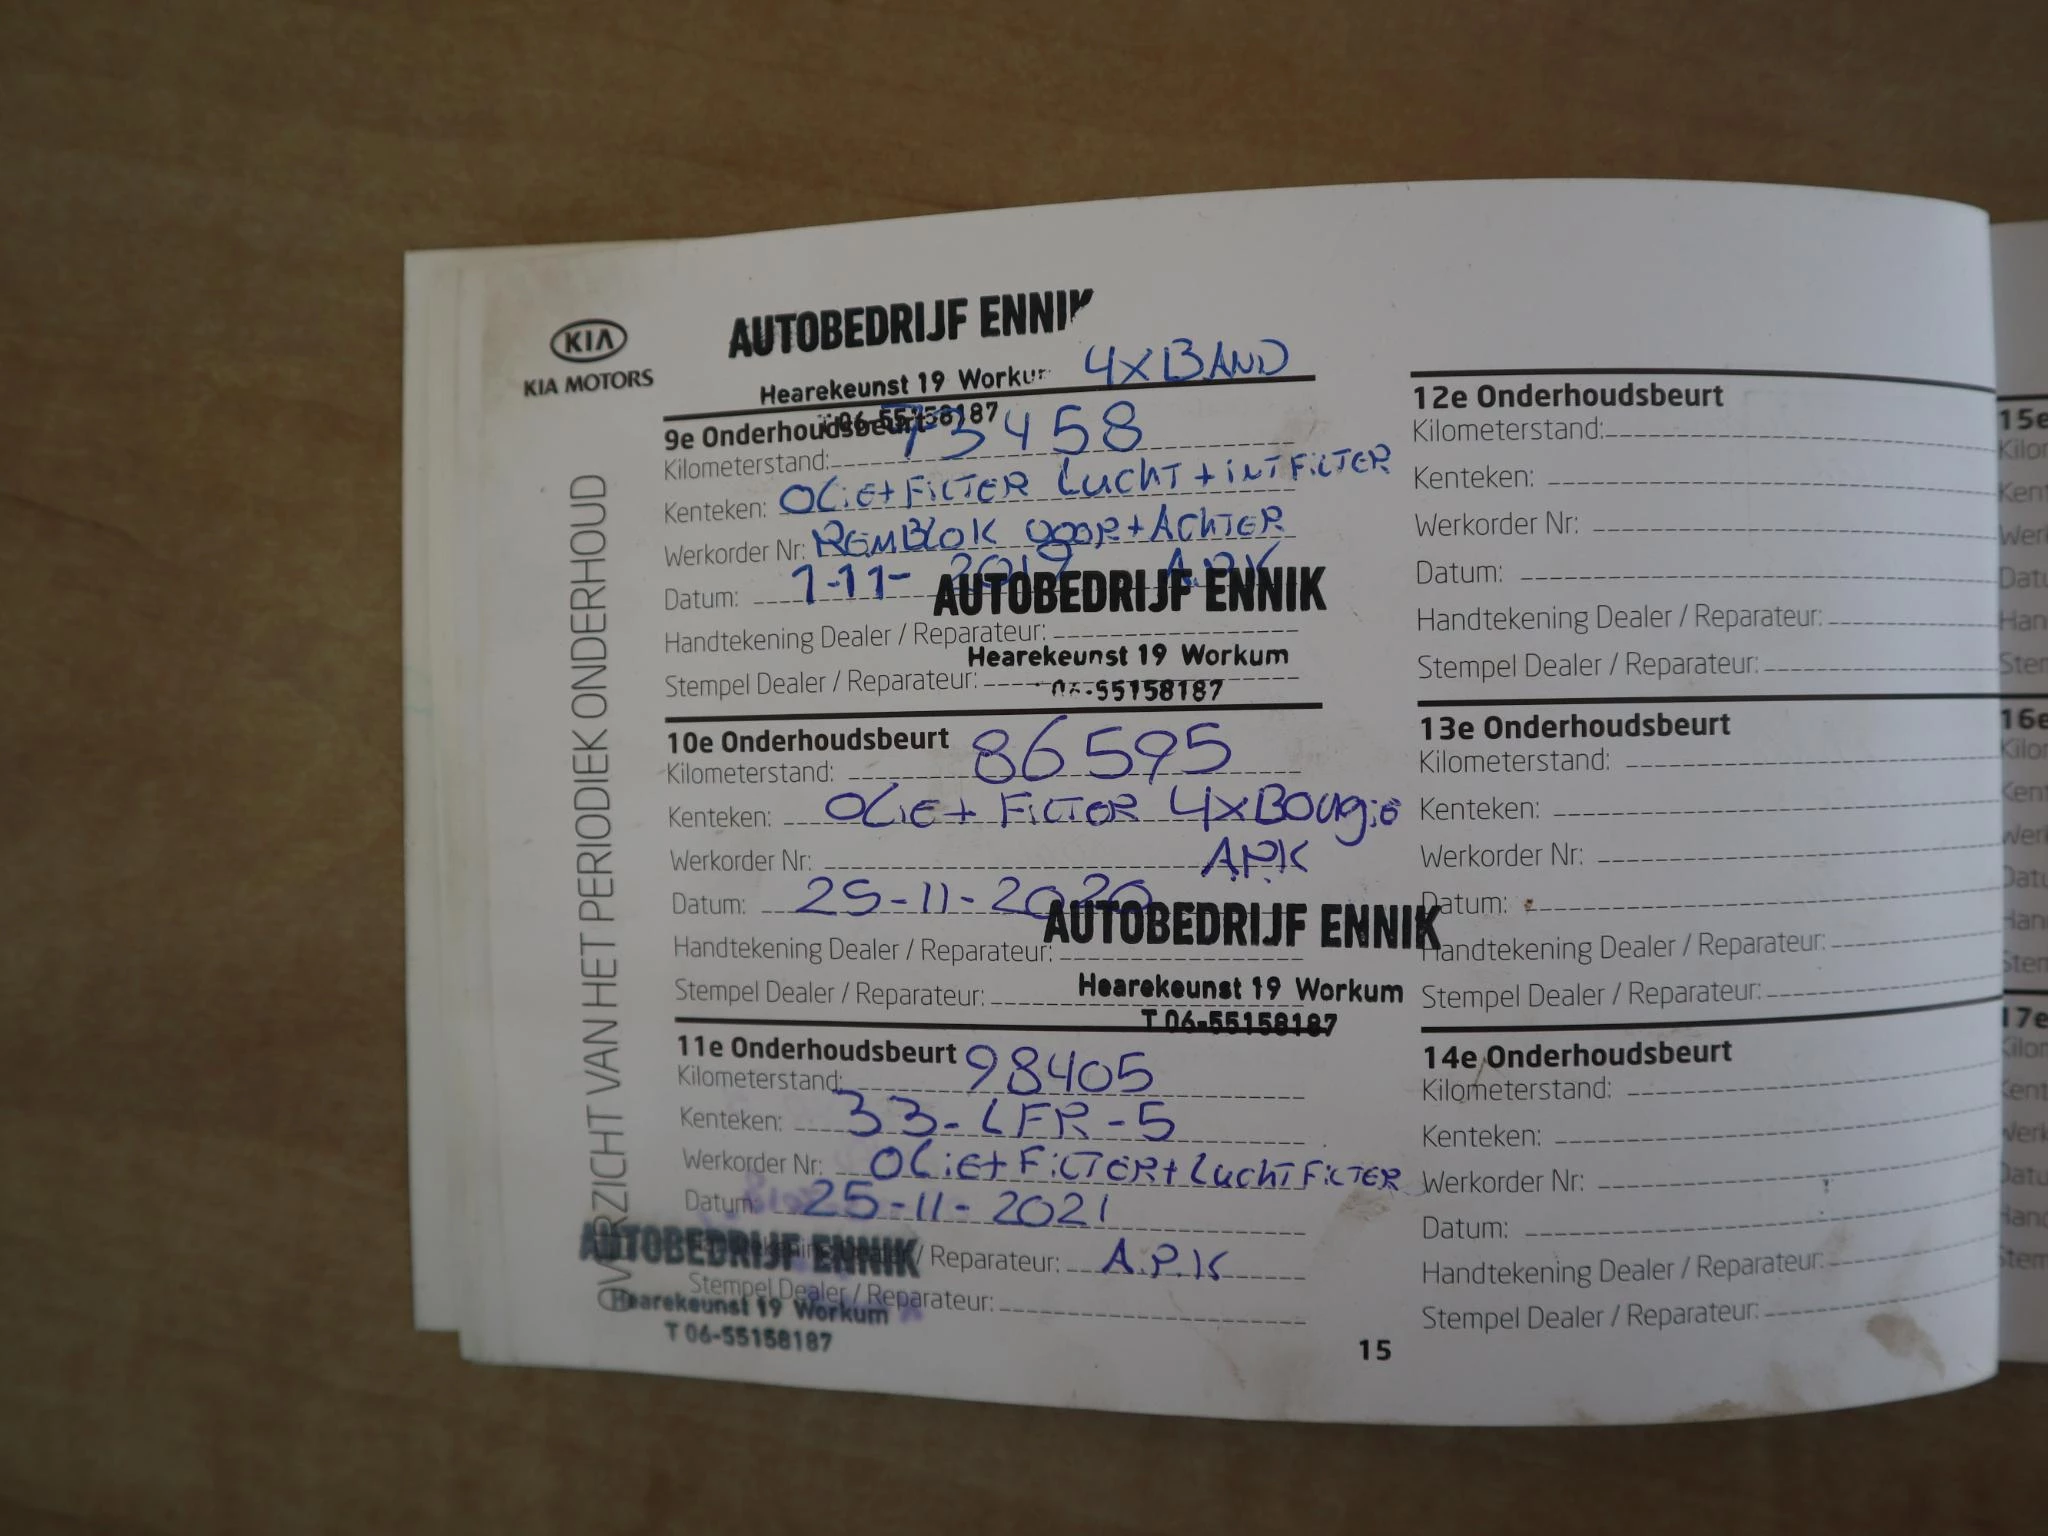 KIA
KIA MOTORS
OVERZICHT VAN HET PERIODIEK ONDERHOUD
AUTOBEDRIJF ENNIK
Hearekeunst 19 Workum
06-55158187
4x BAND
9e Onderhoudsbeurt
Kilometerstand: 73458
Kenteken: OLiE+FiLTER LUCHT+iNTFiLTER
Werkorder Nr: REMBLOK VOOR+ACHTER
Datum: 1-11-2019 A.P.K
AUTOBEDRIJF ENNIK
Handtekening Dealer / Reparateur:
Hearekeunst 19 Workum
Stempel Dealer / Reparateur:
06-55158187
10e Onderhoudsbeurt
Kilometerstand: 86595
Kenteken: OLiE+ FiLTER 4xBOUgiE
Werkorder Nr: A.P.K
Datum: 25-11-2020
AUTOBEDRIJF ENNIK
Handtekening Dealer / Reparateur:
Hearekeunst 19 Workum
Stempel Dealer / Reparateur:
T 06-55158187
11e Onderhoudsbeurt
Kilometerstand: 98405
Kenteken: 33-LFR-5
Werkorder Nr: OLiE+FiLTER+LUCHTFiLTER
Datum: 25-11-2021
AUTOBEDRIJF ENNIK
Handtekening Dealer / Reparateur: A.P.K
Stempel Dealer / Reparateur:
Hearekeunst 19 Workum
T 06-55158187
12e Onderhoudsbeurt
Kilometerstand:
Kenteken:
Werkorder Nr:
Datum:
Handtekening Dealer / Reparateur:
Stempel Dealer / Reparateur:
13e Onderhoudsbeurt
Kilometerstand:
Kenteken:
Werkorder Nr:
Datum:
Handtekening Dealer / Reparateur:
Stempel Dealer / Reparateur:
14e Onderhoudsbeurt
Kilometerstand:
Kenteken:
Werkorder Nr:
Datum:
Handtekening Dealer / Reparateur:
Stempel Dealer / Reparateur:
15
15e
16e
17e